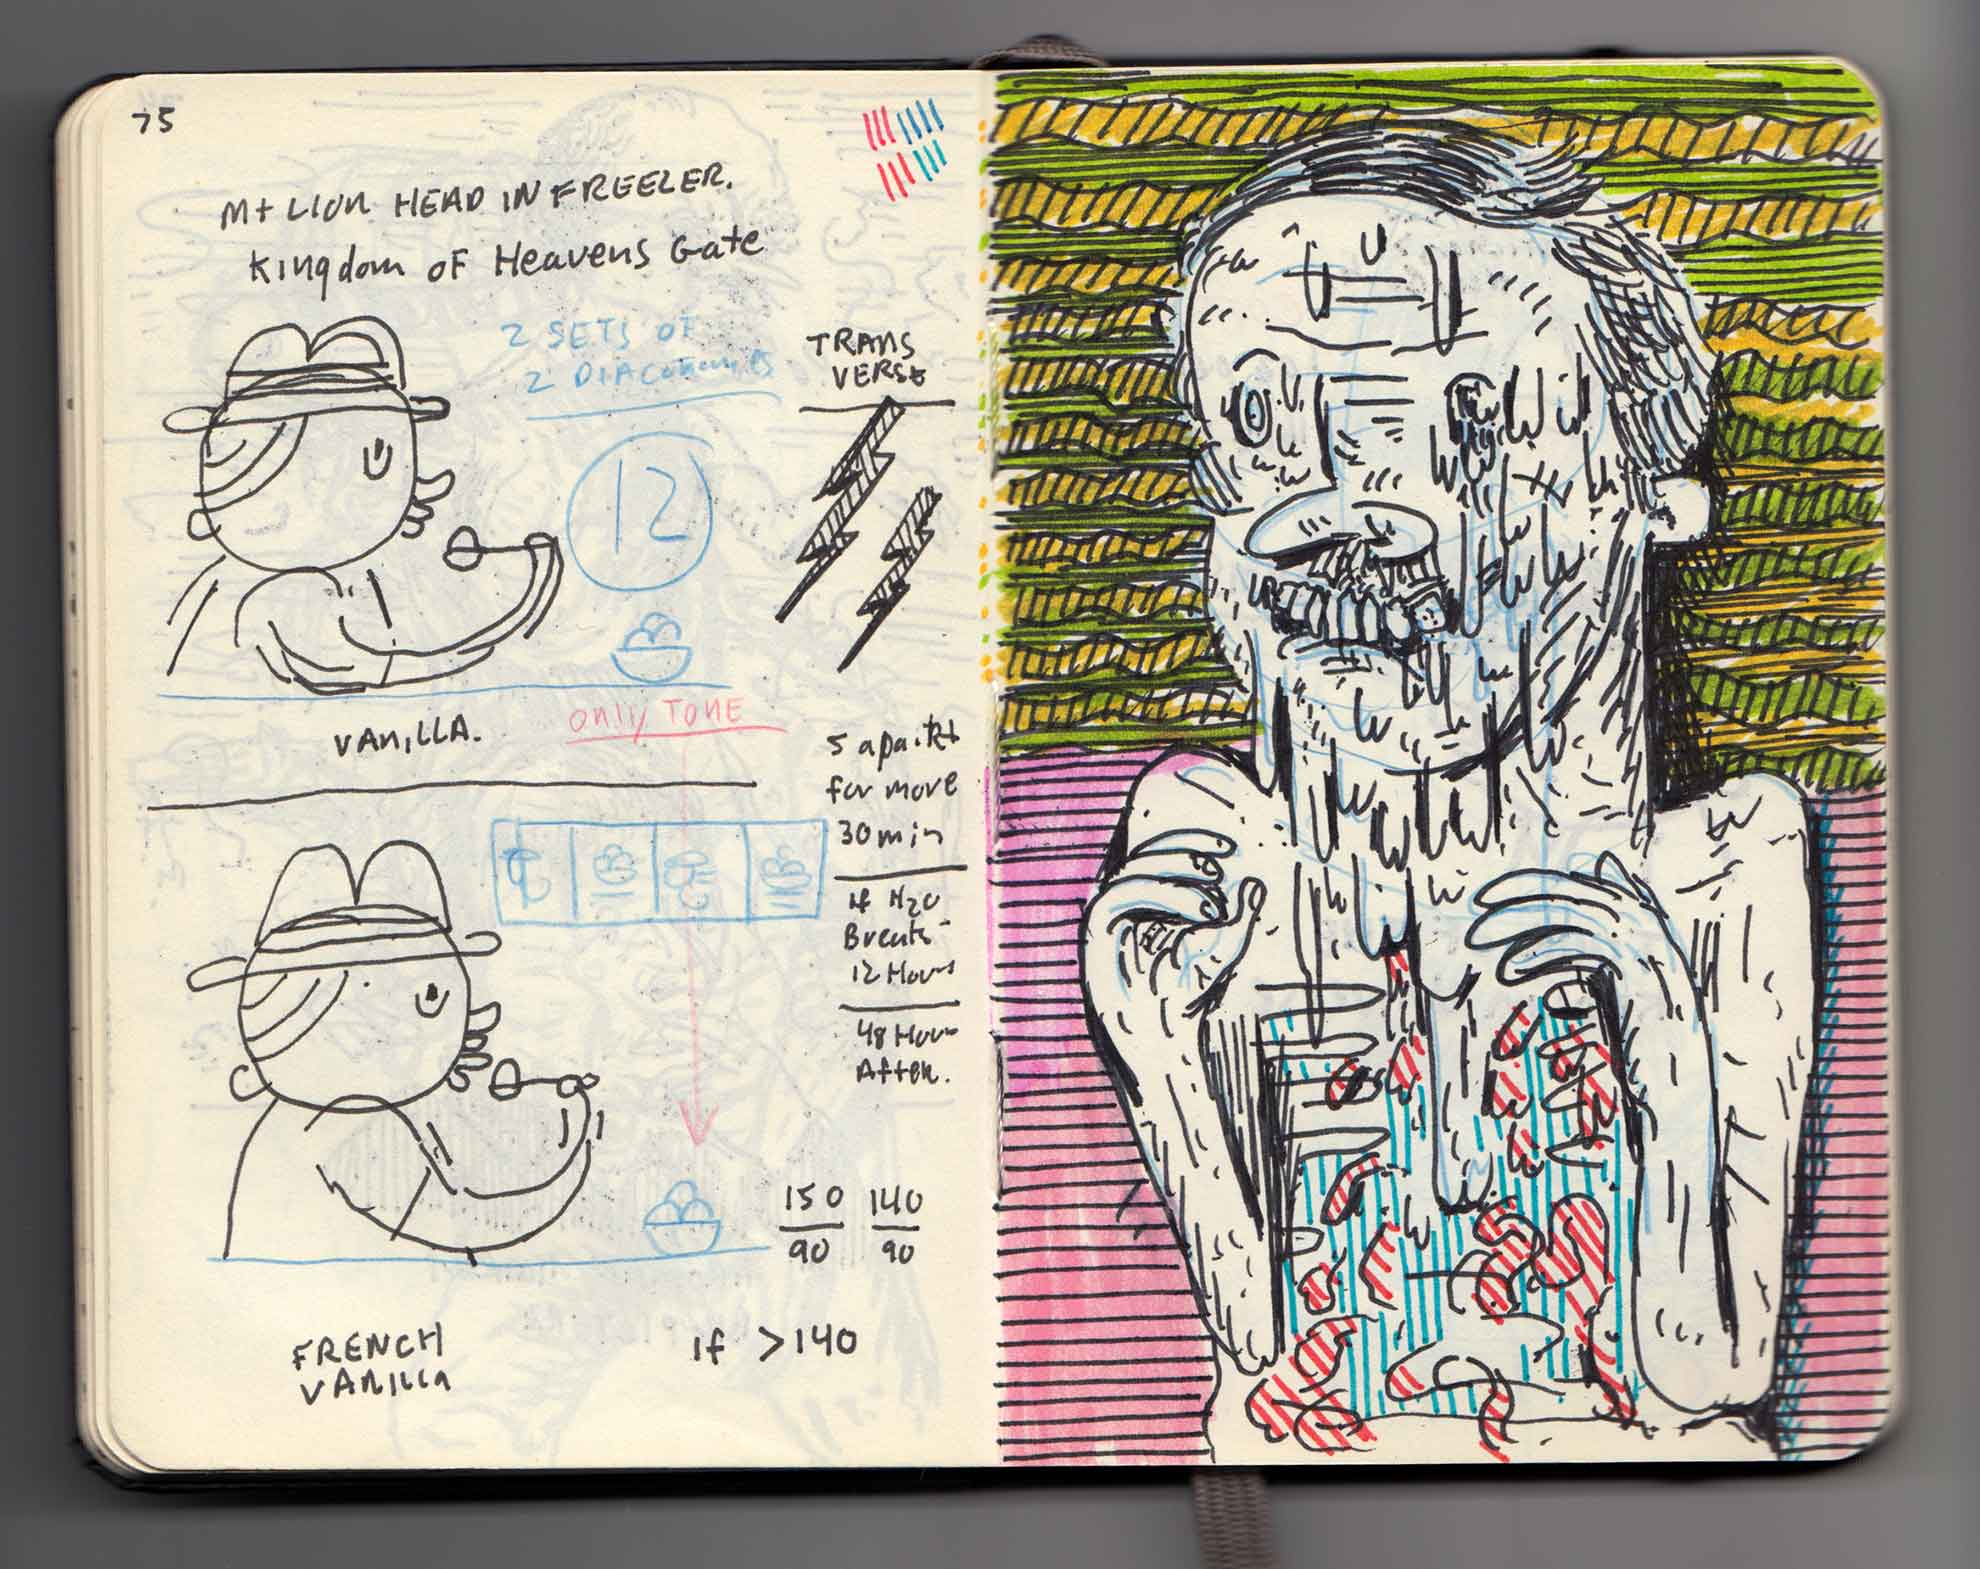 75
Mt LION HEAD IN FREEZER.
KINGDOM OF HEAVENS GATE
2 SETS OF
2
TRANS
VERSE
12
VANILLA.
ONLY TONE
5 apart
for more
30 min
if H2O
Break
12 Hours
48 Hour
After.
150 140
90 90
FRENCH
VANILLA
if >140